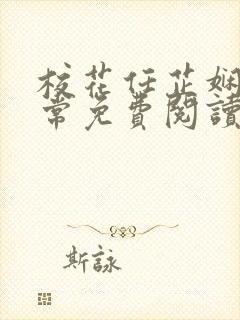 校花任芷嫻
常免費閱讀
斯詠